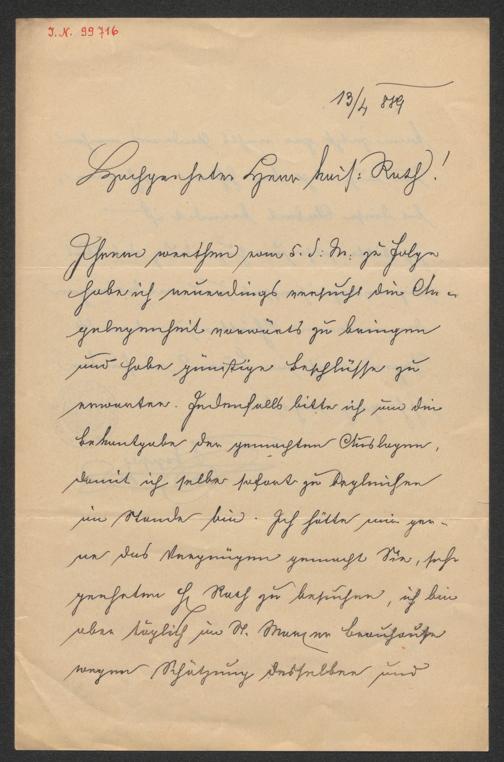 I.N. 99716
13/4 889
Hochgeehrter Herr kais: Rath!
Ihrem werthen vom 5. d: M. zu Folge
habe ich neuerdings versucht die An-
gelegenheit vorwärts zu bringen
und habe günstige Beschlüsse zu
erwarten. Jedenfalls bitte ich um die
Bekantgabe der gemachten Auslagen,
damit ich selbe sofort zu begleichen
im Stande bin. Ich hätte mir ger-
ne das Vergnügen gemacht Sie, sehr
geehrten H Rath zu besuchen, ich bin
aber täglich im St. Marxer Brauhause
wegen Schätzung desselben und